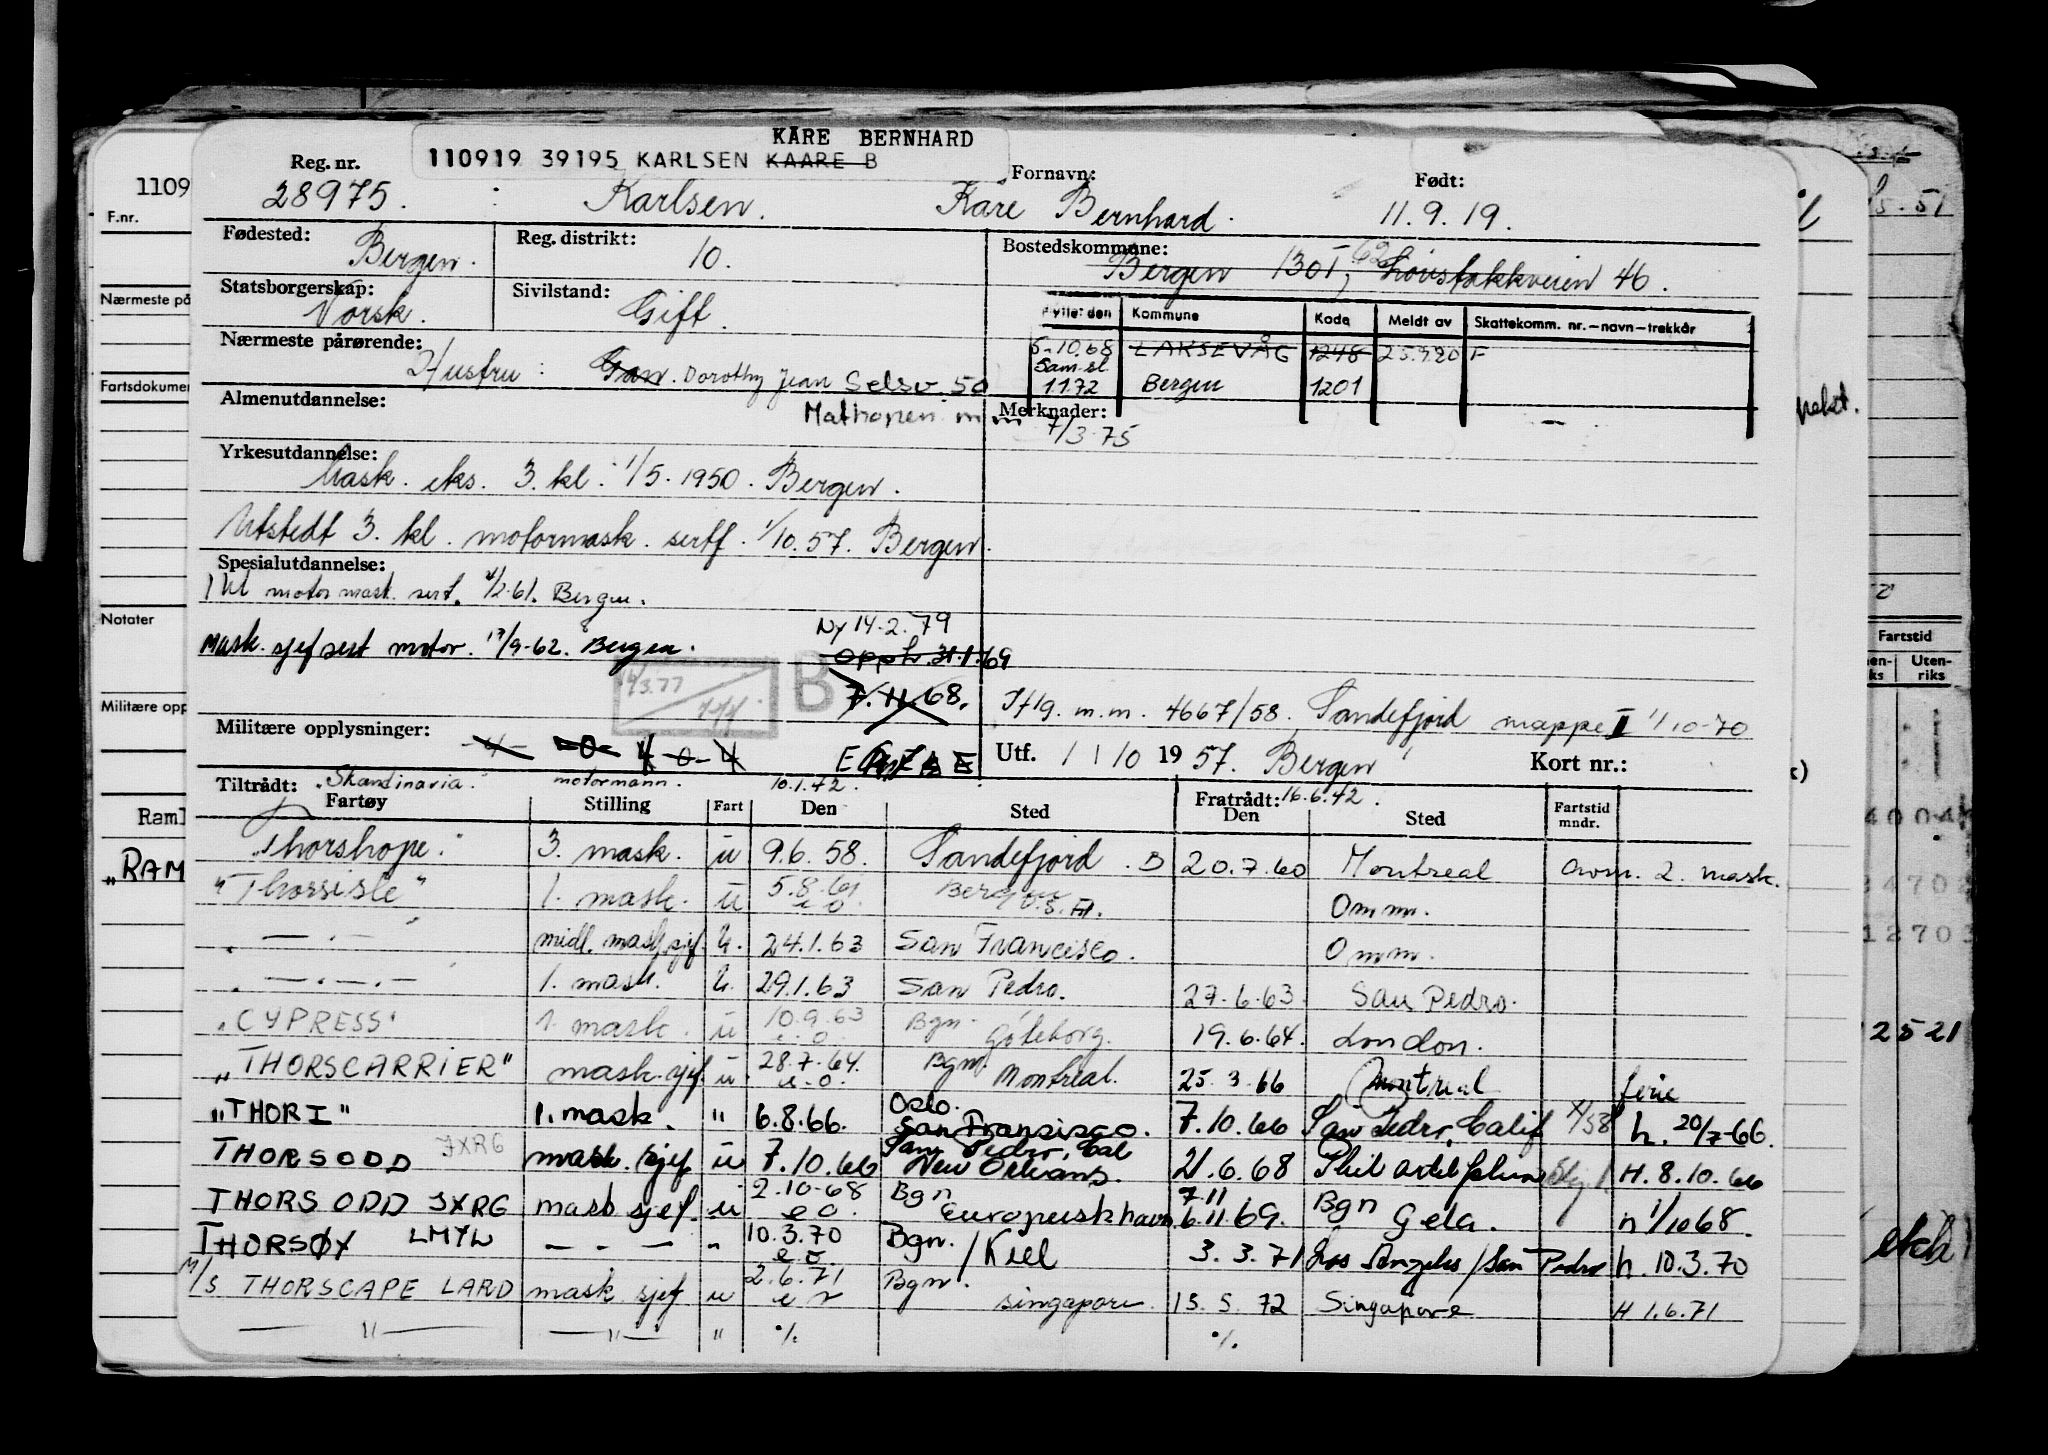 KÅRE BERNHARD
110919 39195 KARLSEN KAARE B
Reg. nr. Fornavn: Født:
28975. Karlsen. Kåre Bernhard. 11.9.19.
1109
F.nr.
Fødested: Bergen. Reg. distrikt: 10. Bostedskommune: Bergen 1301, Løvstakkveien 46.
Statsborgerskap: Norsk. Sivilstand: Gift.
Nærmeste på
Flyttet den Kommune Kode Meldt av Skattekomm. nr.–navn–trekkår
5-10.68 LAKSEVÅG 1248 F
Sam.sl.
1172 Bergen 1201
Nærmeste pårørende: Hustru: Dorothy Jean Selsv. 50
Mathopen
Fartsdokumen
Almenutdannelse: Merknader:
7/3.75
Yrkesutdannelse:
Mask. eks. 3. kl. 1/5. 1950. Bergen.
Utstedt 3. kl. motormask. sertf. 1/10.57. Bergen.
Spesialutdannelse:
1 kl motor mask. sert. 2.61. Bergen.
Notater
Ny 14.2.79
Mask. sjef sert motor. 17/9-62. Bergen.
Opph. 31.1.69
14/3.77
B
7.11.68.
Militære opp
Jfg. m.m. 4667/58. Sandefjord mappe II 1/10-70
Militære opplysninger:
Utf. 1/10 1957. Bergen Kort nr.:
Tiltrådt: "Skandinavia" motormann. 10.1.42. Fratrådt: 16.6.42.
Fartøy Stilling Fart Den Sted Den Sted Fartstid mndr.
"Thorshope" 3. mask. u 9.6.58. Sandefjord. B 20.7.60 Montreal avm. 2. mask.
"Thorsisle" 1. mask. u 5.8.61 e.o. Bergen U.S.A. Omm.
— . — midl. mask sjef. u. 24.1.63 San Francisco. Omm.
— . — . — 1. mask. u. 29.1.63 San Pedro. 27.6.63. San Pedro.
"CYPRESS" 1. mask. u 10.9.63 e.o. Bgn. Göteborg. 19.6.64. London.
"THORSCARRIER" mask. sjef. u. 28.7.64. e.o. Bgn. Montreal. 25.3.66 Montreal ferie
"THORI" 1. mask. " 6.8.66. Oslo. San Fransisco. 7.10.66 San Pedro, Calif h. 20/7-66.
THORSODD JXRG mask. sjef u 7.10.66 San Pedro, Cal New Orleans. 21.6.68 H. 8.10.66
THORS ODD JXRG mask sjef. u 2.10-68 e o. Bgn Europeisk havn 7.11 6.11.69. Bgn Gela. h 1/10 68.
THORSØY LMYW — . — " 10.3.70 e.o. Bgn. / Kiel 3.3.71 Los Angeles / San Pedro h. 10.3.70
M/S THORSCAPE LARD mask sjef u 2.6.71 Bgn. singapore. 15.5.72 Singapore H 1.6.71
— " — — " — " ./. ./.
Raml
"RAM
Fartstid
Uten-
riks
12703
2521